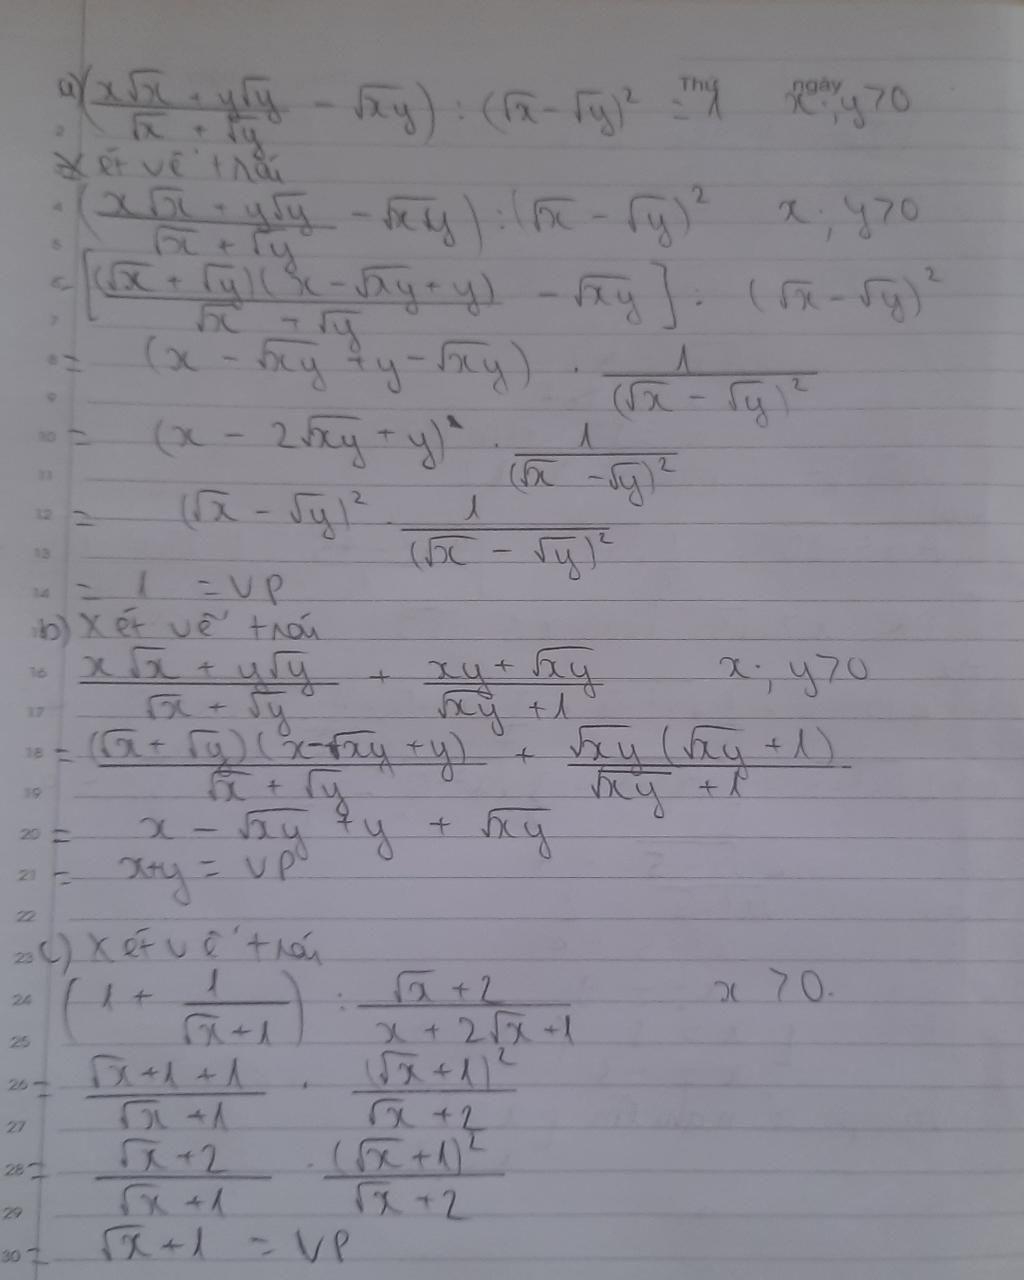 a) (x√x + y√y / √x + √y - √xy) : (√x - √y)² = 1 x ; y > 0
Thứ ngày
Xét vế trái
(x√x + y√y / √x + √y - √xy) : (√x - √y)² x ; y > 0
= [(√x + √y)(x - √xy + y) / √x + √y - √xy] : (√x - √y)²
= (x - √xy + y - √xy) . 1 / (√x - √y)²
= (x - 2√xy + y) . 1 / (√x - √y)²
= (√x - √y)² . 1 / (√x - √y)²
= 1 = VP
b) Xét vế trái
x√x + y√y / √x + √y + xy + √xy / √xy + 1 x ; y > 0
= (√x + √y)(x - √xy + y) / √x + √y + √xy (√xy + 1) / √xy + 1
= x - √xy + y + √xy
= x+y = VP
c) Xét vế trái
(1 + 1 / √x + 1) : √x + 2 / x + 2√x + 1 x > 0.
= √x + 1 + 1 / √x + 1 . (√x + 1)² / √x + 2
= √x + 2 / √x + 1 . (√x + 1)² / √x + 2
= √x + 1 = VP